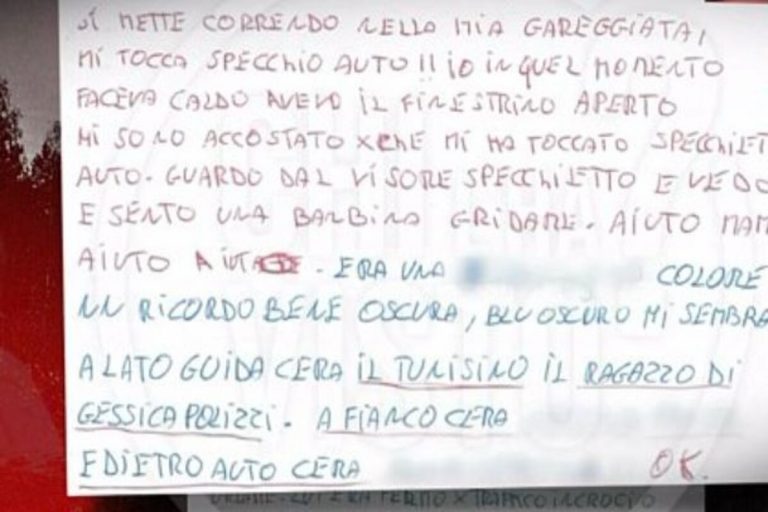 SI METTE CORRENDO NELLA MIA GAREGGIATA,
MI TOCCA SPECCHIO AUTO !! IO IN QUEL MOMENTO
FACEVA CALDO AVEVO IL FINESTRINO APERTO
MI SONO ACCOSTATO XCHE MI HA TOCCATO SPECCHIET
AUTO. GUARDO DAL VISORE SPECCHIETTO E VEDO
E SENTO UNA BAMBINA GRIDARE. AIUTO MAM
AIUTO AIUT. ERA UNA COLORE
NN RICORDO BENE OSCURA, BLU OSCURO MI SEMBRA
A LATO GUIDA CERA IL TUNISINO IL RAGAZZO DI
GESSICA PULIZZI. A FIANCO CERA
E DIETRO AUTO CERA OK.